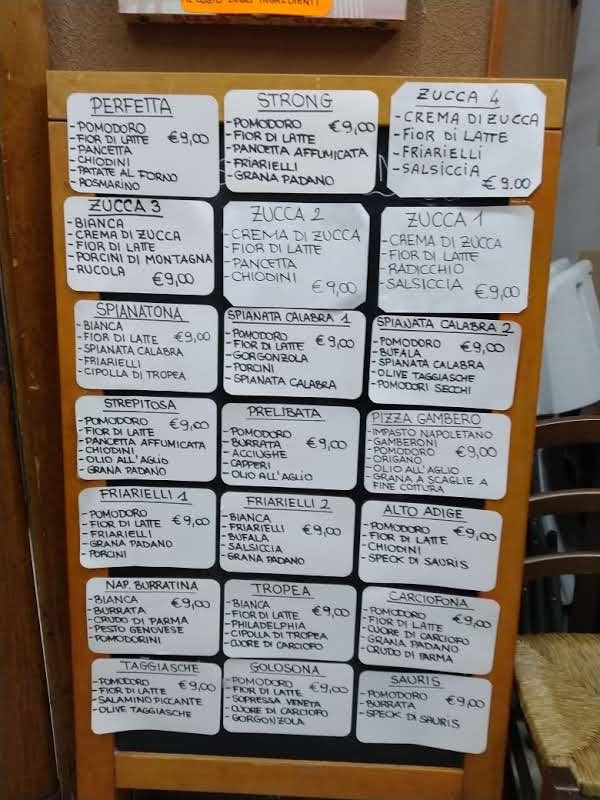 IL COSTO DEGLI INGREDIENTI
PERFETTA
- POMODORO
- FIOR DI LATTE €9,00
- PANCETTA
- CHIODINI
- PATATE AL FORNO
- ROSMARINO
STRONG
- POMODORO €9,00
- FIOR DI LATTE
- PANCETTA AFFUMICATA
- FRIARIELLI
- GRANA PADANO
ZUCCA 4
- CREMA DI ZUCCA
- FIOR DI LATTE
- FRIARIELLI
- SALSICCIA
€9.00
ZUCCA 3
- BIANCA
- CREMA DI ZUCCA
- FIOR DI LATTE
- PORCINI DI MONTAGNA
- RUCOLA €9,00
ZUCCA 2
- CREMA DI ZUCCA
- FIOR DI LATTE
- PANCETTA
- CHIODINI
€9,00
ZUCCA 1
- CREMA DI ZUCCA
- FIOR DI LATTE
- RADICCHIO
- SALSICCIA €9,00
SPIANATONA
- BIANCA
- FIOR DI LATTE €9,00
- SPIANATA CALABRA
- FRIARIELLI
- CIPOLLA DI TROPEA
SPIANATA CALABRA 1
- POMODORO
- FIOR DI LATTE €9,00
- GORGONZOLA
- PORCINI
- SPIANATA CALABRA
SPIANATA CALABRA 2
- POMODORO €9,00
- BUFALA
- SPIANATA CALABRA
- OLIVE TAGGIASCHE
- POMODORI SECCHI
STREPITOSA
- POMODORO €9,00
- FIOR DI LATTE
- PANCETTA AFFUMICATA
- CHIODINI
- OLIO ALL'AGLIO
- GRANA PADANO
PRELIBATA
- POMODORO
- BURRATA €9,00
- ACCIUGHE
- CAPPERI
- OLIO ALL'AGLIO
PIZZA GAMBERO
- IMPASTO NAPOLETANO
- GAMBERONI
- POMODORO €9,00
- ORIGANO
- OLIO ALL'AGLIO
- GRANA A SCAGLIE A
FINE COTTURA
FRIARIELLI 1
- POMODORO
- FIOR DI LATTE €9,00
- FRIARIELLI
- GRANA PADANO
- PORCINI
FRIARIELLI 2
- BIANCA
- FRIARIELLI €9,00
- BUFALA
- SALSICCIA
- GRANA PADANO
ALTO ADIGE
- POMODORO €9,00
- FIOR DI LATTE
- CHIODINI
- SPECK DI SAURIS
NAP. BURRATINA
- BIANCA €9,00
- BURRATA
- CRUDO DI PARMA
- PESTO GENOVESE
- POMODORINI
TROPEA
- BIANCA
- FIOR DI LATTE €9,00
- PHILADELPHIA
- CIPOLLA DI TROPEA
- CUORE DI CARCIOFO
CARCIOFONA
- POMODORO
- FIOR DI LATTE €9,00
- CUORE DI CARCIOFO
- GRANA PADANO
- CRUDO DI PARMA
TAGGIASCHE
- POMODORO
- FIOR DI LATTE €9,00
- SALAMINO PICCANTE
- OLIVE TAGGIASCHE
GOLOSONA
- POMODORO
- FIOR DI LATTE €9,00
- SOPRESSA VENETA
- CUORE DI CARCIOFO
- GORGONZOLA
SAURIS
- POMODORO €9,00
- BURRATA
- SPECK DI SAURIS